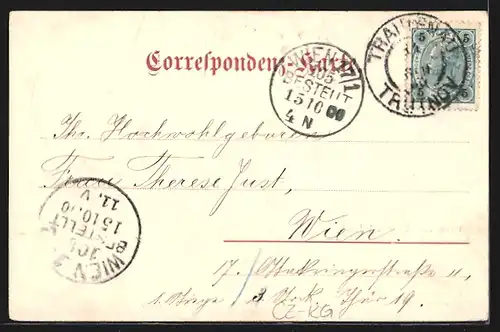 Correspondenz-Karte
5 5
TRAUTENAU
TRUTNOV
WIEN 7/1
105
BESTELLT
15 10 00
4 N
Ihr Hochwohlgeboren
Frau Therese Just,
Wien.
17. Ottakringerstraße 11,
1. Stiege 3. Stock Thür 19.
WIEN
105
BESTELLT
15 10 00
11. V